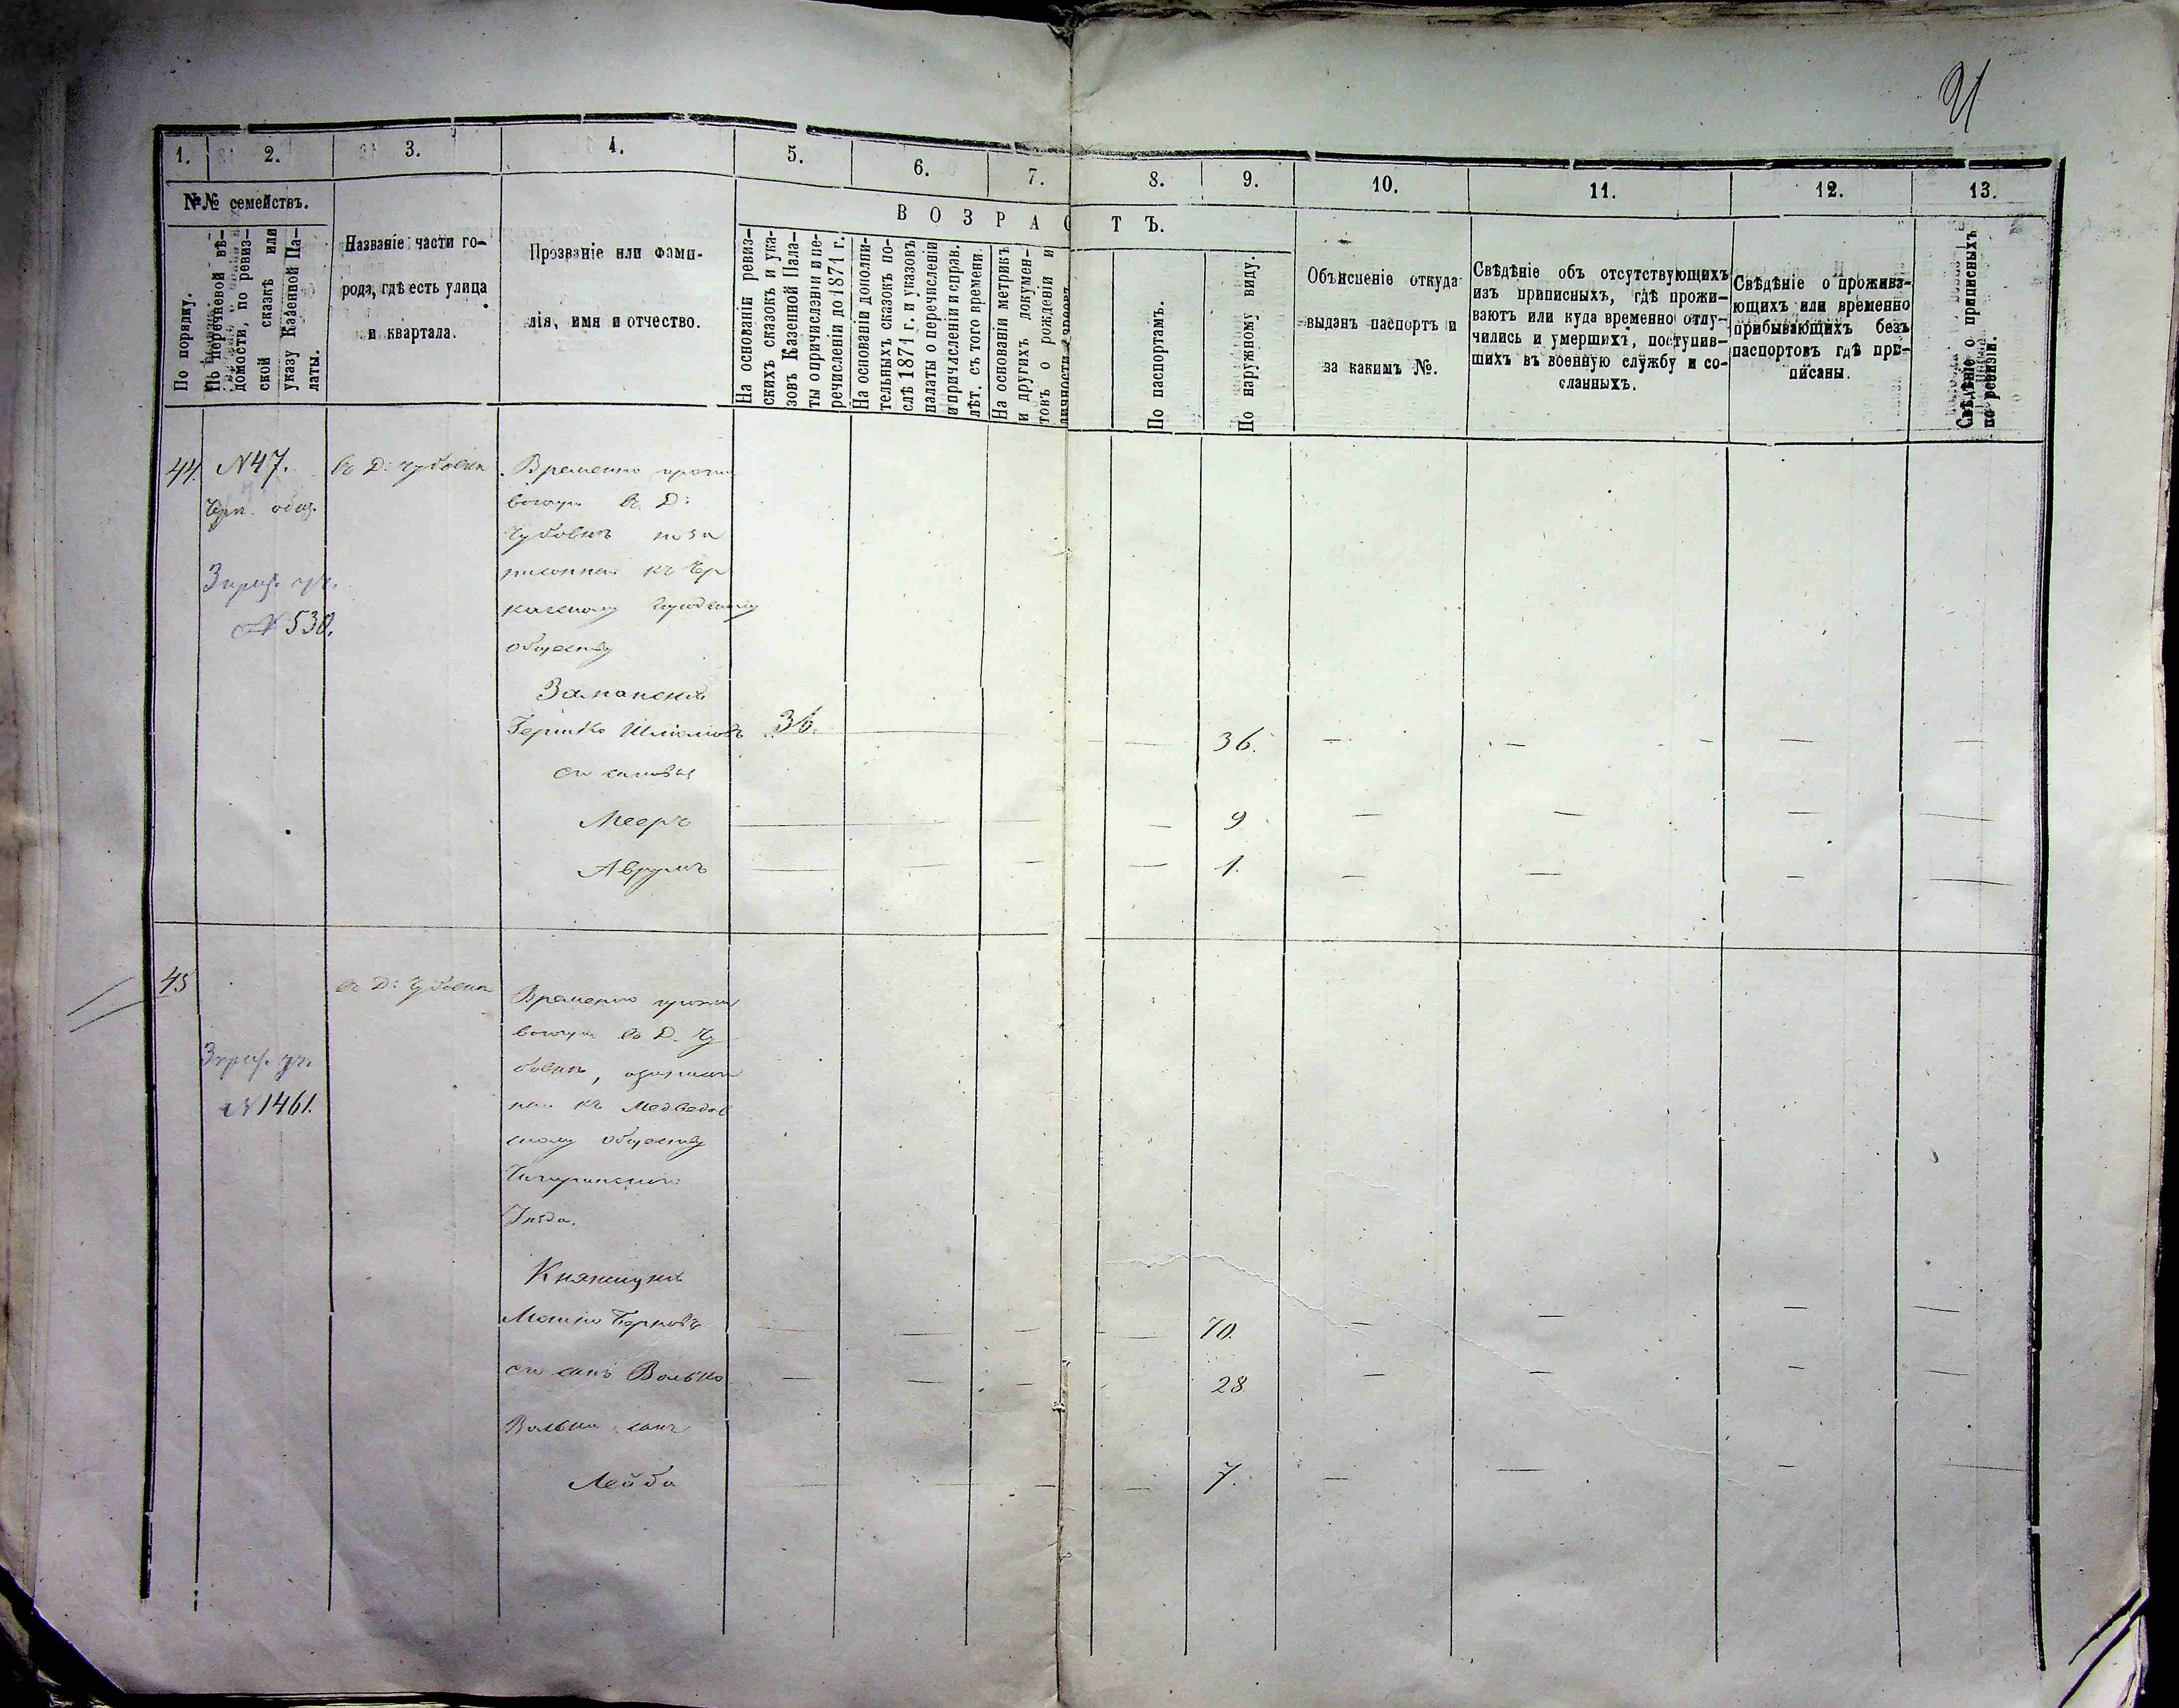 21
1. 2. 3. 4. 5. 6. 7. 8. 9. 10. 11. 12. 13.
№№ семействъ.
По порядку.
По перечневой вѣ-
домости, по ревиз-
ской сказкѣ или
указу Казенной Па-
латы.
Названіе части го-
рода, гдѣ есть улица
и квартала.
Прозваніе или фами-
лія, имя и отчество.
ВОЗРАСТЪ.
На основаніи ревиз-
скихъ сказокъ и ука-
зовъ Казенной Пала-
ты о причисленіи и пе-
речисленіи до 1871 г.
На основаніи дополни-
тельныхъ сказокъ по-
слѣ 1871 г. и указовъ
палаты о перечисленіи
и причисленіи и справ.
лѣт. съ того времени.
На основаніи метрикъ
и другихъ докумен-
товъ о рожденіи и
личности евреевъ.
По паспортамъ.
По наружному виду.
Объясненіе откуда
выданъ паспортъ и
за какимъ №.
Свѣдѣніе объ отсутствующихъ
изъ приписныхъ, гдѣ прожи-
ваютъ или куда временно отлу-
чились и умершихъ, поступив-
шихъ въ военную службу и со-
сланныхъ.
Свѣдѣніе о прожива-
ющихъ или временно
прибывающихъ безъ
паспортовъ гдѣ при-
писаны.
Свѣдѣніе о приписныхъ
по ревизіи.
44. N 47. въ Д: Чубовкѣ Временно прожи
Черк. общ. вающи въ Д:
Чубовкѣ
къ Чер
N 538. касскому
обществу
Заполскій
Гершко Шліомовъ 36. — — 36. — — — —
его сыновья
Мееръ — — — — 9 — — — —
Аврумъ — — — — 1. — — — —
45 въ Д: Чубовкѣ Временно прожи
вающи въ Д. Чу
бовкѣ,
N 1461. къ Медведов
скому обществу
Чигиринскаго
Уѣзда.
Княжицкій
Мошко Берковъ — — — — 70. — — — —
его сынъ Волько — — — 28 — — — —
Волька сынъ
Лейба — — — — 7. — — — —